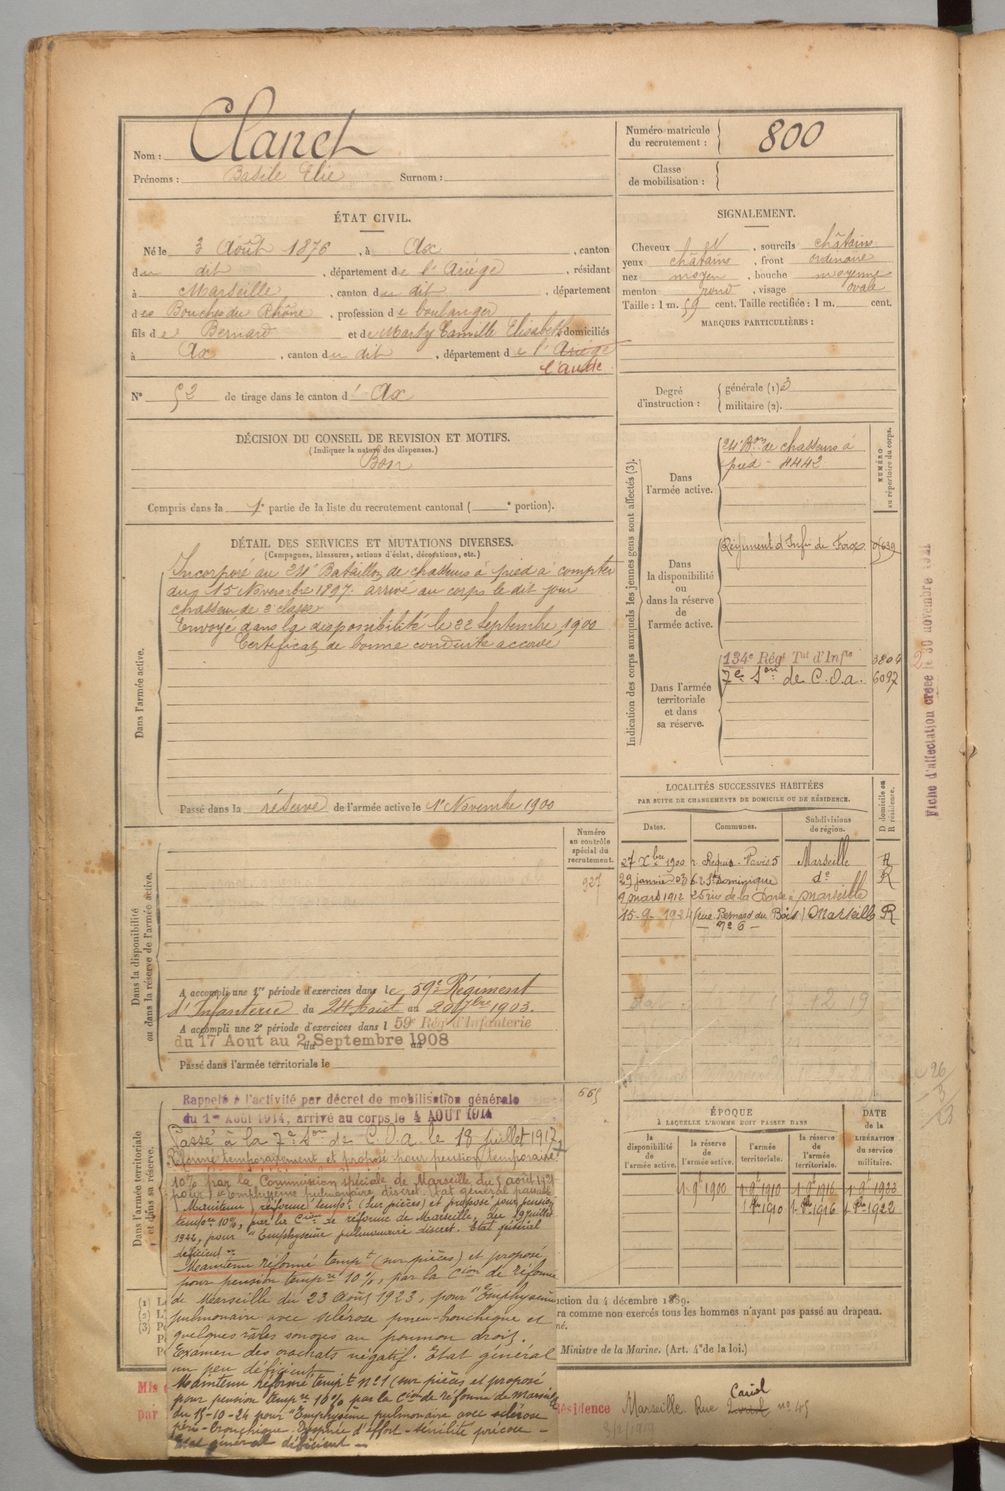 Nom : Clanet
Prénoms : Basile Elie Surnom :
Numéro matricule du recrutement : 800
Classe de mobilisation :
ÉTAT CIVIL.
Né le 3 Août 1876, à Ax, canton
du dit, département de l'Ariège, résidant
à Marseille, canton du dit, département
des Bouches du Rhône, profession de boulanger
fils de Bernard et de Marty Camille Elisabeth domiciliés
à Ax, canton du dit, département de l'Ariège
l'aude
N° 52 de tirage dans le canton d' Ax
SIGNALEMENT.
Cheveux , sourcils châtains
yeux châtains, front ordinaire
nez moyen, bouche moyenne
menton rond, visage ovale
Taille : 1 m. 59 cent. Taille rectifiée : 1 m. cent.
MARQUES PARTICULIÈRES :
Degré d'instruction : générale (1) 3
militaire (2).
DÉCISION DU CONSEIL DE REVISION ET MOTIFS.
(Indiquer la nature des dispenses.)
Bon
Compris dans la 1e partie de la liste du recrutement cantonal ( e portion).
DÉTAIL DES SERVICES ET MUTATIONS DIVERSES.
(Campagnes, blessures, actions d'éclat, décorations, etc.)
Dans l'armée active.
Incorporé au 24e Bataillon de chasseurs à pied à compter
du 15 Novembre 1897. arrivé au corps le dit jour
chasseur de 2e classe
Envoyé dans la disponibilité le 22 Septembre 1900
Certificat de bonne conduite accordé
Passé dans la réserve de l'armée active le 1er Novembre 1900
Indication des corps auxquels les jeunes gens sont affectés (3).
NUMÉRO au répertoire du corps.
Dans l'armée active.
24e Bon de chasseurs à
pied - 4442
Dans la disponibilité ou dans la réserve de l'armée active.
Régiment d'Infie de Foix
Dans l'armée territoriale et dans sa réserve.
134e Régt Tal d'Infie 3804
7e Son de C.O.a. 6097
Fiche d'affectation créée le 30 novembre 1921
LOCALITÉS SUCCESSIVES HABITÉES
PAR SUITE DE CHANGEMENTS DE DOMICILE OU DE RÉSIDENCE.
Dates. Communes. Subdivisions de région. D domicile ou R résidence.
27 Xbre 1900 Marseille R
29 janvier 03 6 r. St Dominique do R
9 mars 1912 25 rue de la Marseille
15-9-1924 (rue Bernard du Bois) Marseille R
- n° 6 -
Dans la disponibilité ou dans la réserve de l'armée active.
Numéro au contrôle spécial du recrutement.
927
A accompli une 1re période d'exercices dans le 59e Régiment
d'Infanterie du 24 Août au 20 7bre 1903.
A accompli une 2e période d'exercices dans l 59e Rég d'Infanterie
du 17 Aout au 2 Septembre 1908
Passé dans l'armée territoriale le
Dans l'armée territoriale et dans sa réserve.
Rappelé à l'activité par décret de mobilisation générale
du 1er Août 1914, arrivé au corps le 4 AOUT 1914
Passé à la 7e Son de C.O.a. le 18 Juillet 1917
Réformé temporairement et proposé pour pension temporaire
10% par la Commission spéciale de Marseille du 5 août 1921
pour : Emphysème pulmonaire discret. Etat général passable
Maintenu réformé tempre (sur pièces) et proposé pour pension
tempre 10%, par la Cion de réforme de Marseille, du 19 juillet
1922, pour "Emphysème pulmonaire discret. Etat général
déficient"
Maintenu réformé tempt (sur pièces) et proposé
pour pension tempre 10%, par la Cion de réforme
de Marseille du 23 Août 1923, pour "Emphysème
pulmonaire avec sclérose et
quelques râles sonores au poumon droit.
Examen des crachats négatif. Etat général
un peu déficient
Maintenu réformé tempt n°1 (sur pièces et proposé
pour pension tempre 10% par la Cion de réforme de Marseille
du 15-10-24 pour "Emphysème pulmonaire avec sclérose
péri-bronchique. Dyspnée d'effort - sénilité précoce -
Etat général déficient -
ÉPOQUE
À LAQUELLE L'HOMME DOIT PASSER DANS
la disponibilité de l'armée active. la réserve de l'armée active. l'armée territoriale. la réserve de l'armée territoriale.
DATE de la LIBÉRATION du service militaire.
1.9bre 1900 1.9bre 1910 1.9bre 1916 1.9bre 1922
1.8bre 1910 1.8bre 1916 1.8bre 1922
ction du 4 décembre 1889.
ra comme non exercés tous les hommes n'ayant pas passé au drapeau.
né.
Ministre de la Marine. (Art. 4 de la loi.)
Mis
par
ésidence Marseille Rue n° 45